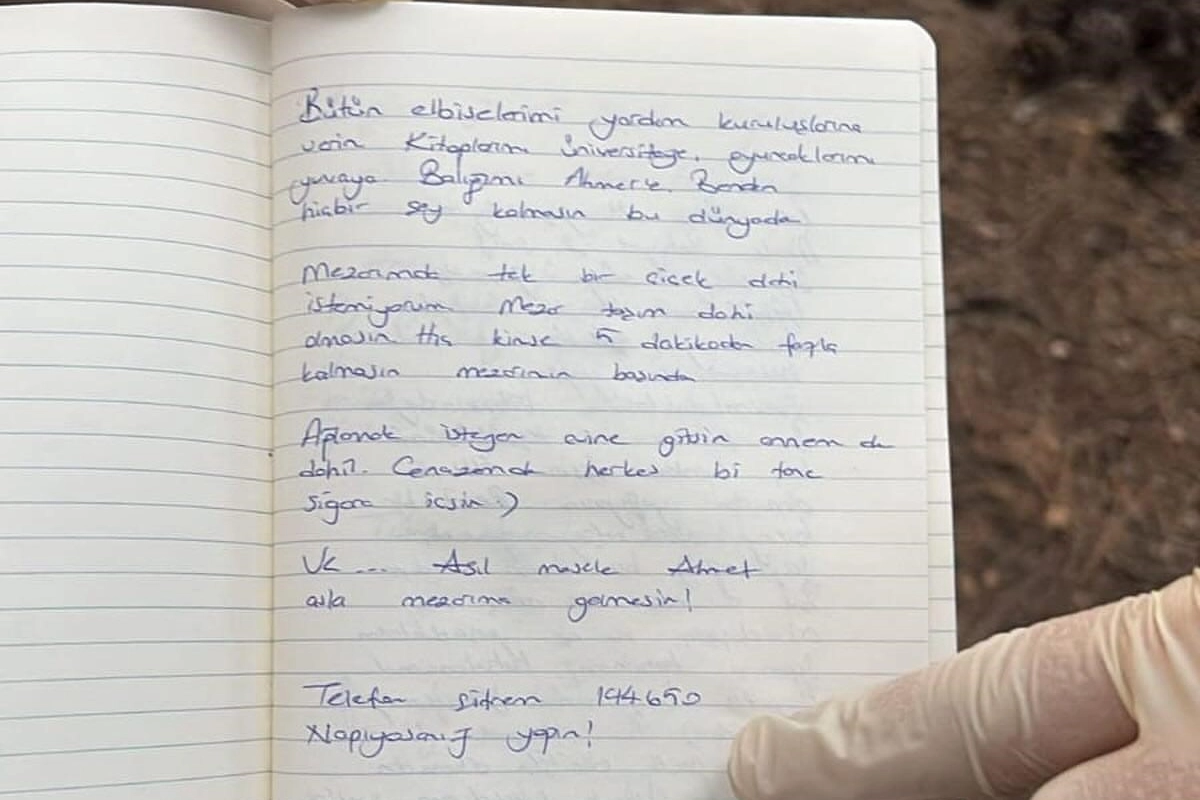 Bütün elbiselerimi yardım kuruluşlarına
verin Kitaplarımı üniversiteye, oyuncaklarımı
yuvaya Balığımı Ahmet'e. Benden
hiçbir şey kalmasın bu dünyada
Mezarımda tek bir çiçek dahi
istemiyorum Mezar taşım dahi
olmasın. Hiç kimse 5 dakikadan fazla
kalmasın mezarımın başında
Ağlamak isteyen evine gitsin annem de
dahil. Cenazemde herkes bi tane
sigara içsin :)
Ve ... Asıl mesele Ahmet
asla mezarıma gelmesin!
Telefon şifrem 194650
Napıyosanız yapın!